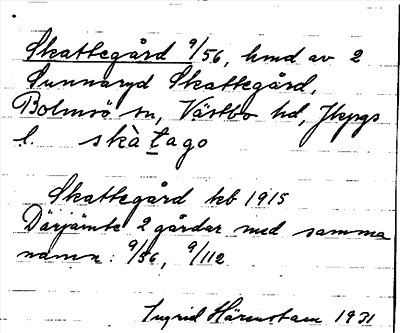 Skattegård 9/56, hmd av 2
Sunnaryd Skattegård,
Bolmsö sn, Västbo hd, Jkpgs
l. skàtago
Skattegård kb 1915
Därjämte 2 gårdar med samma
namn: 9/56, 9/112
Ingrid Härenstam 1931